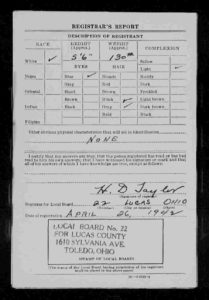 REGISTRAR'S REPORT
DESCRIPTION OF REGISTRANT
RACE
HEIGHT (Approx.)
WEIGHT (Approx.)
COMPLEXION
White ✓
5'6"
130
Sallow
EYES
HAIR
Light ✓
Negro
Blue ✓
Blonde
Ruddy
Gray
Red
Dark
Oriental
Hazel
Brown
Freckled
Brown
Black ✓
Light brown
Indian
Black
Gray
Dark brown
Bald
Black
Filipino
Other obvious physical characteristics that will aid in identification
NONE
I certify that my answers are true; that the person registered has read or has had read to him his own answers; that I have witnessed his signature or mark and that all of his answers of which I have knowledge are true, except as follows:
H. D. Taylor
Registrar for Local Board 22 LUCAS OHIO
Date of registration APRIL 26, 1942
LOCAL BOARD No. 22
FOR LUCAS COUNTY
1610 SYLVANIA AVE.
TOLEDO, OHIO
STAMP OF LOCAL BOARD
(The stamp of the Local Board having jurisdiction of the registrant shall be placed in the above space)